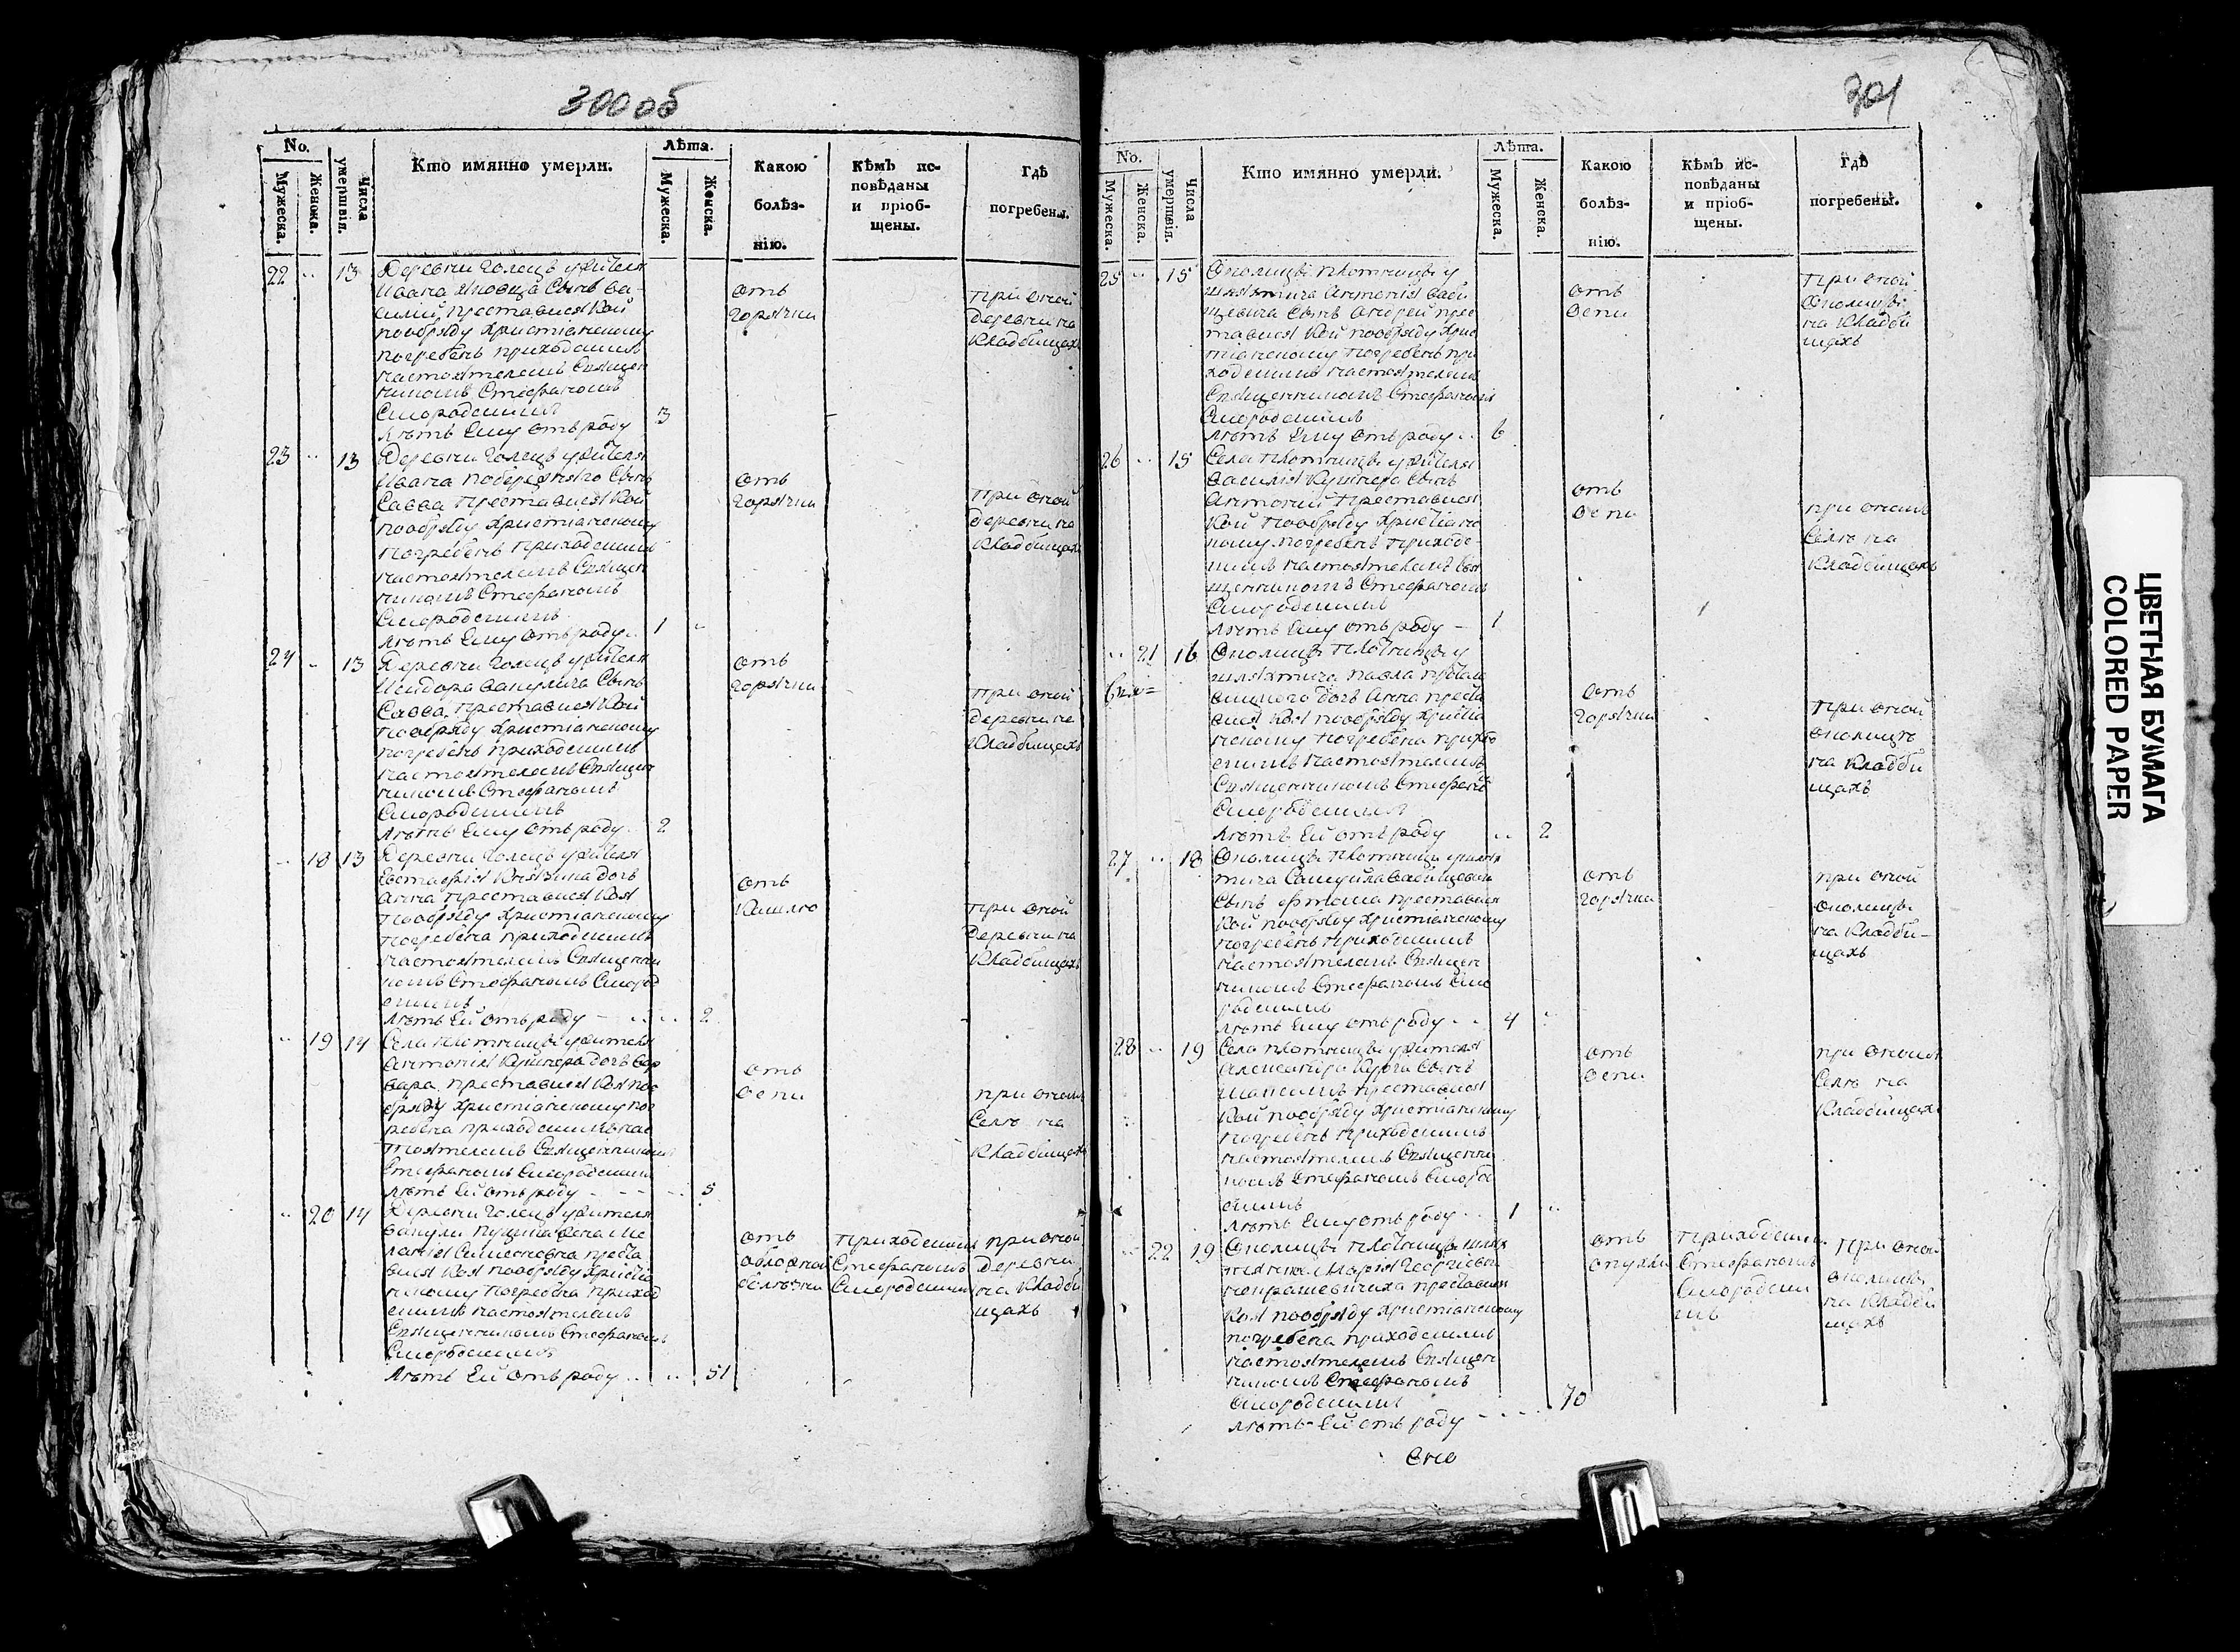 300 об
No.
Мужеска.
Женска.
Числа умертвія.
Кто имянно умерли.
Лѣта.
Мужеска.
Женска.
Какою болѣз-
нію.
Кѣмъ ис-
повѣданы
и пріоб-
щены.
Гдѣ
погребены.
22 .. 13 Деревни Голецъ жителя
Ивана сынъ Ва-
силій преставися Кой
пообряду христіанскому
погребенъ приходскимъ
настоятелемъ Священ
никомъ Стефаномъ
Смородскимъ
лѣтъ Ему отъ роду 3
отъ
горячки
при оной
деревни на
Кладбищахъ
23 .. 13 Деревни Голецъ жителя
Ивана Сынъ
Савва преставися Кой
пообряду христіанскому
погребенъ приходскимъ
настоятелемъ Священ
никомъ Стефаномъ
Смородскимъ
лѣтъ Ему отъ роду .. 1 ..
отъ
горячки
при оной
деревни на
Кладбищахъ
24 .. 13 Деревни Голецъ жителя
Исидора Вакулича Сынъ
Савва преставися Кой
пообряду христіанскому
погребенъ приходскимъ
настоятелемъ Священ
никомъ Стефаномъ
Смородскимъ
лѣтъ Ему отъ роду .. 2
отъ
горячки
при оной
деревни на
Кладбищахъ
.. 18 13 Деревни Голецъ жителя
Евстафія дочь
Анна преставися Коя
пообряду христіанскому
погребена приходскимъ
настоятелемъ Священни
комъ Стефаномъ Смород
скимъ
лѣтъ Ей отъ роду .. 2
отъ
Кашлю
при оной
деревни на
Кладбищахъ
.. 19 14 Села Плотницы жителя
Антонія Кушнера дочь Вар
вара преставися Коя поо
бряду христіанскому пог
ребена приходскимъ нас
тоятелемъ Священникомъ
Стефаномъ Смородскимъ
лѣтъ Ей отъ роду .. 5
отъ
оспи
при ономъ
Селѣ на
Кладбищахъ
.. 20 14 Деревни Голецъ жителя
Вакули жена Ме
ланія Симеоновна преста
вися Коя пообряду христіа
нскому погребена приход
скимъ настоятелемъ
Священникомъ Стефаномъ
Смородскимъ
лѣтъ Ей отъ роду .. .. 51
отъ
обложной
болѣзни
приходскимъ
Стефаномъ
Смородскимъ
при оной
деревни
на Кладби
щахъ
301
No.
Мужеска.
Женска.
Числа умертвія.
Кто имянно умерли.
Лѣта.
Мужеска.
Женска.
Какою
болѣз-
нію.
Кѣмъ ис-
повѣданы
и пріоб-
щены.
Гдѣ
погребены.
25 .. 15 Околицы Плотницы у
шляхтича Антонія Баби
щевича Сынъ Андрей прес
тавися Кой пообряду хрис
тіанскому погребенъ при
ходскимъ настоятелемъ
Священникомъ Стефаномъ
Смородскимъ
лѣтъ Ему отъ роду .. 6
отъ
оспи
при оной
Околицы
на Кладби
щахъ
26 .. 15 Села Плотницы жителя
Василія Кушнера Сынъ
Антоній преставися
Кой пообряду христіанс
кому погребенъ приходс-
кимъ настоятелемъ Свя
щенникомъ Стефаномъ
Смородскимъ
лѣтъ Ему отъ роду - 1
отъ
оспи
при ономъ
Селѣ на
Кладбищахъ
.. 21 16 Околицы Плотницы у
шляхтича Павла
дочь Анна преста
вися Коя пообряду христіа
нскому погребена приход
скимъ настоятелемъ
Священникомъ Стефано
Смородскимъ
лѣтъ Ей отъ роду .. 2
отъ
горячки
при оной
околицѣ
на Кладби
щахъ
27 .. 18 Околицы Плотницы шлях
тича Самуила Бабищевича
Сынъ Фома преставися
Кой пообряду христіанскому
погребенъ приходскимъ
настоятелемъ Священ
никомъ Стефаномъ Смо
родскимъ
лѣтъ Ему отъ роду .. 4 ..
отъ
горячки
при оной
околицы
на Кладби-
щахъ
28 .. 19 Села Плотницы жителя
Александра Сынъ
Максимъ преставися
Кой пообряду христіанскому
погребенъ приходскимъ
настоятелемъ Священни
комъ Стефаномъ Смород
скимъ
лѣтъ Ему отъ роду .. 1 ..
отъ
оспи
при ономъ
Селѣ на
Кладбищахъ
.. 22 19 Околицы Плотницы шлях
тянка Марія Георгіева
преставися
Коя пообряду христіанскому
погребена приходскимъ
настоятелемъ Священ
никомъ Стефаномъ
Смородскимъ
лѣтъ Ей отъ роду .... 70
отъ
опухли
приходским
Стефаномъ
Смородски
мъ
при оной
околицы
на Кладби
щахъ
ЦВЕТНАЯ БУМАГА
COLORED PAPER